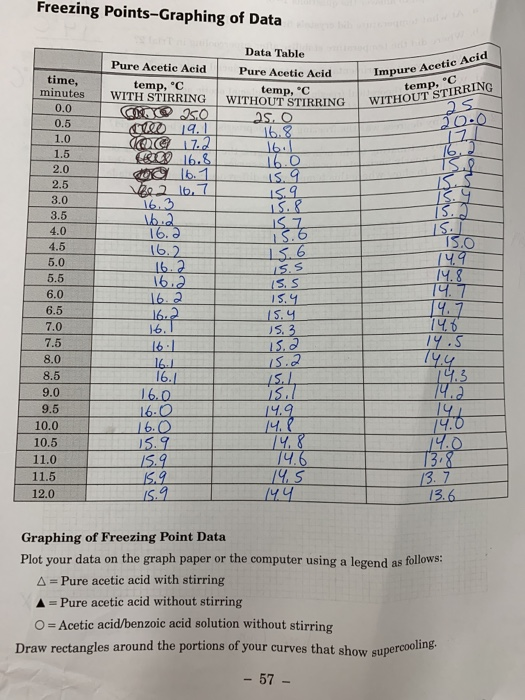 Freezing Points–Graphing of Data
Data Table
Pure Acetic Acid Pure Acetic Acid Impure Acetic Acid
time, minutes temp, °C WITH STIRRING temp, °C WITHOUT STIRRING temp, °C WITHOUT STIRRING
0.0 25.0 25.0 25
0.5 19.1 16.8 20.0
1.0 17.2 16.1 17.1
1.5 16.8 16.0 16.2
2.0 16.7 15.9 15.8
2.5 16.7 15.9 15.5
3.0 16.3 15.8 15.4
3.5 16.2 15.7 15.2
4.0 16.2 15.6 15.1
4.5 16.2 15.6 15.0
5.0 16.2 15.5 14.9
5.5 16.2 15.5 14.8
6.0 16.2 15.4 14.7
6.5 16.2 15.4 14.7
7.0 16.1 15.3 14.6
7.5 16.1 15.2 14.5
8.0 16.1 15.2 14.4
8.5 16.1 15.1 14.3
9.0 16.0 15.1 14.2
9.5 16.0 14.9 14.1
10.0 16.0 14.8 14.0
10.5 15.9 14.8 14.0
11.0 15.9 14.6 13.8
11.5 15.9 14.5 13.7
12.0 15.9 14.4 13.6
Graphing of Freezing Point Data
Plot your data on the graph paper or the computer using a legend as follows:
△ = Pure acetic acid with stirring
▲ = Pure acetic acid without stirring
○ = Acetic acid/benzoic acid solution without stirring
Draw rectangles around the portions of your curves that show supercooling.
– 57 –